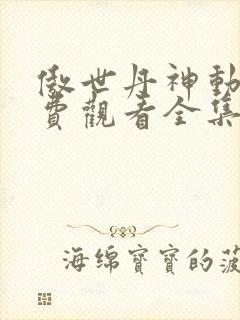 傲世丹神動
費觀看全集
海绵寶寶的菠